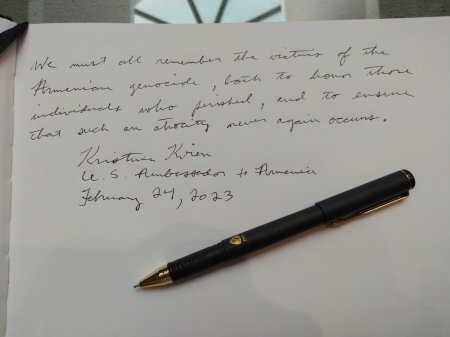 We must all remember the victims of the
Armenian genocide, both to honor those
individuals who perished, and to ensure
that such an atrocity never again occurs.
Kristina Kvien
U.S. Ambassador to Armenia
February 24, 2023